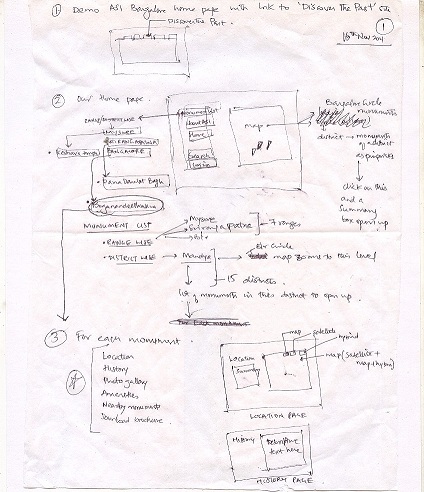 ① Demo ASI Bangalore home page with link to 'Discover The Past' site
①
Discover the Past.
16th Nov 2011
② Our Home page.
Monument List
About ASI
Home
Search
Login
map
Bangalore Circle
monuments
district → monuments
of a district
as pointers
click on this
and a
Summary
box opens up
MYSORE
SRIRANGAPATNA
BANGALORE
• Daria Daulat Bagh
MONUMENT LIST
• RANGE WISE
Mysore
Srirangapatna
7 ranges
• DISTRICT WISE → Mandya
for Circle
map zooms to this level
15 districts.
list of monuments in this district to open up.
③ For each monument.
Location
History
Photogallery
Amenities
Nearby monuments
Download brochure.
map
satellite
hybrid
map (satellite +
map) hybrid
Location
Summary
LOCATION PAGE
History
Descriptive
text here
HISTORY PAGE.